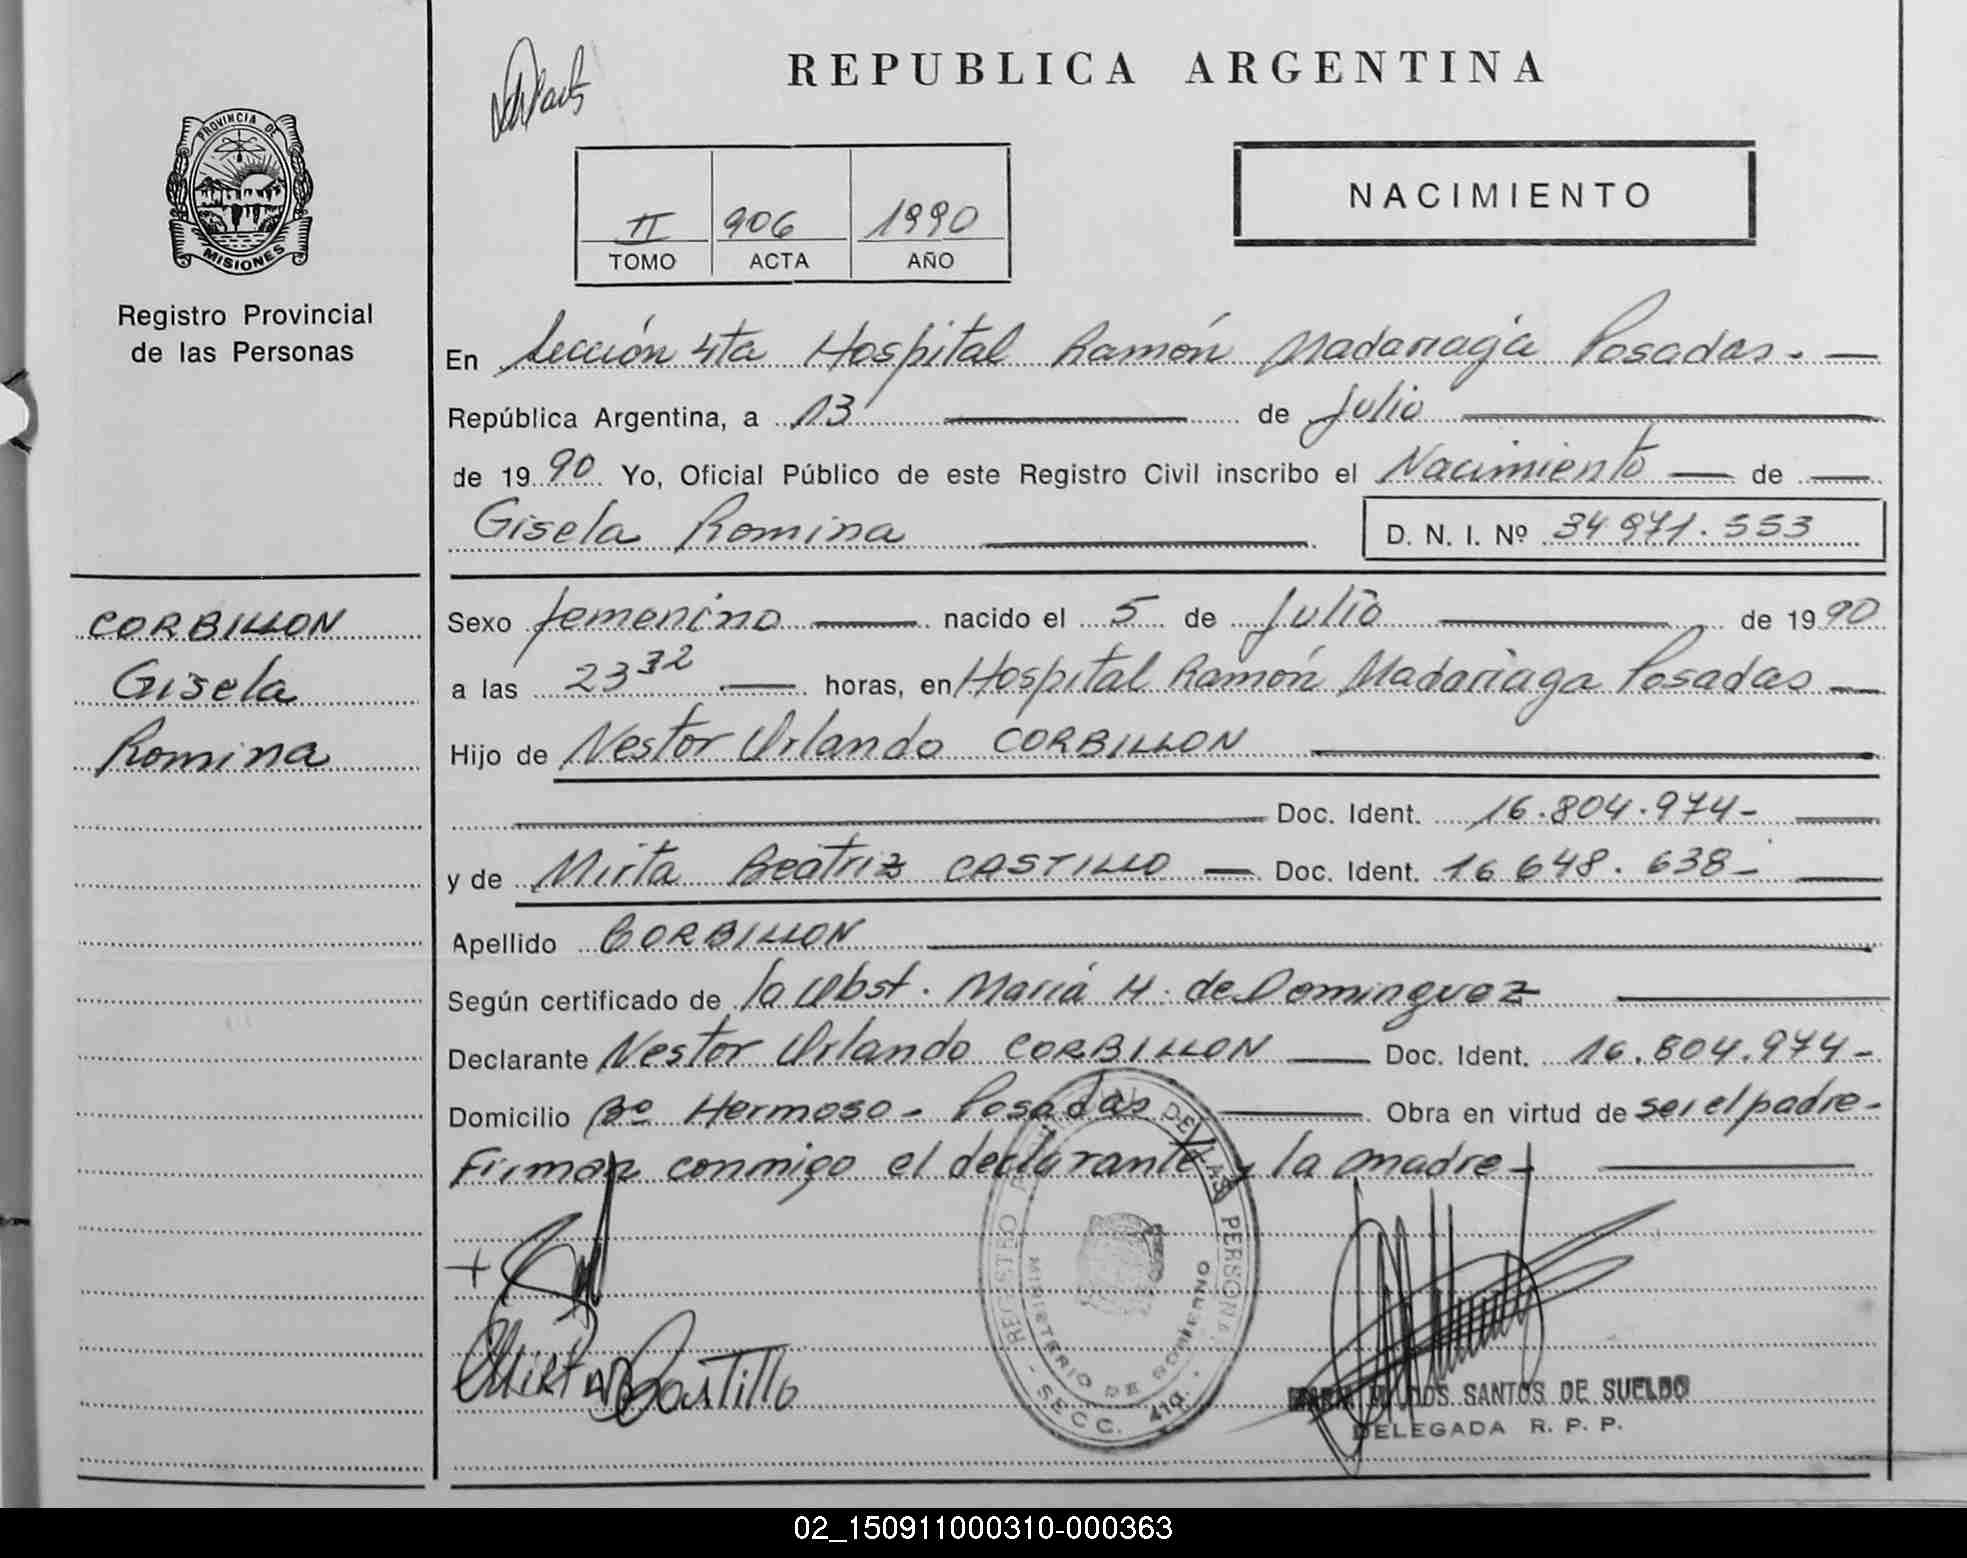 REPUBLICA ARGENTINA
PROVINCIA DE
MISIONES
Registro Provincial
de las Personas
II 906 1990
TOMO ACTA AÑO
NACIMIENTO
En Sección 4ta Hospital Ramón Madariaga Posadas.-
República Argentina, a 13 de Julio
de 1990 Yo, Oficial Público de este Registro Civil inscribo el Nacimiento de
Gisela Romina D. N. I. Nº 34.971.553
CORBILLON
Gisela
Romina
Sexo femenino nacido el 5 de Julio de 1990
a las 23 32 horas, en Hospital Ramón Madariaga Posadas
Hijo de Nestor Orlando CORBILLON
Doc. Ident. 16.804.974-
y de Mirta Beatriz CASTILLO Doc. Ident. 16.648.638-
Apellido CORBILLON
Según certificado de la Obst. María H. de Dominguez
Declarante Nestor Orlando CORBILLON Doc. Ident. 16.804.974-
Domicilio Bº Hermoso - Posadas Obra en virtud de ser el padre-
Firman conmigo el declarante y la madre-
REGISTRO DE LAS PERSONAS
MINISTERIO DE GOBIERNO
- SECC. 4ta. -
Mirta B Castillo
DOS SANTOS DE SUELDO
DELEGADA R. P. P.
02_150911000310-000363